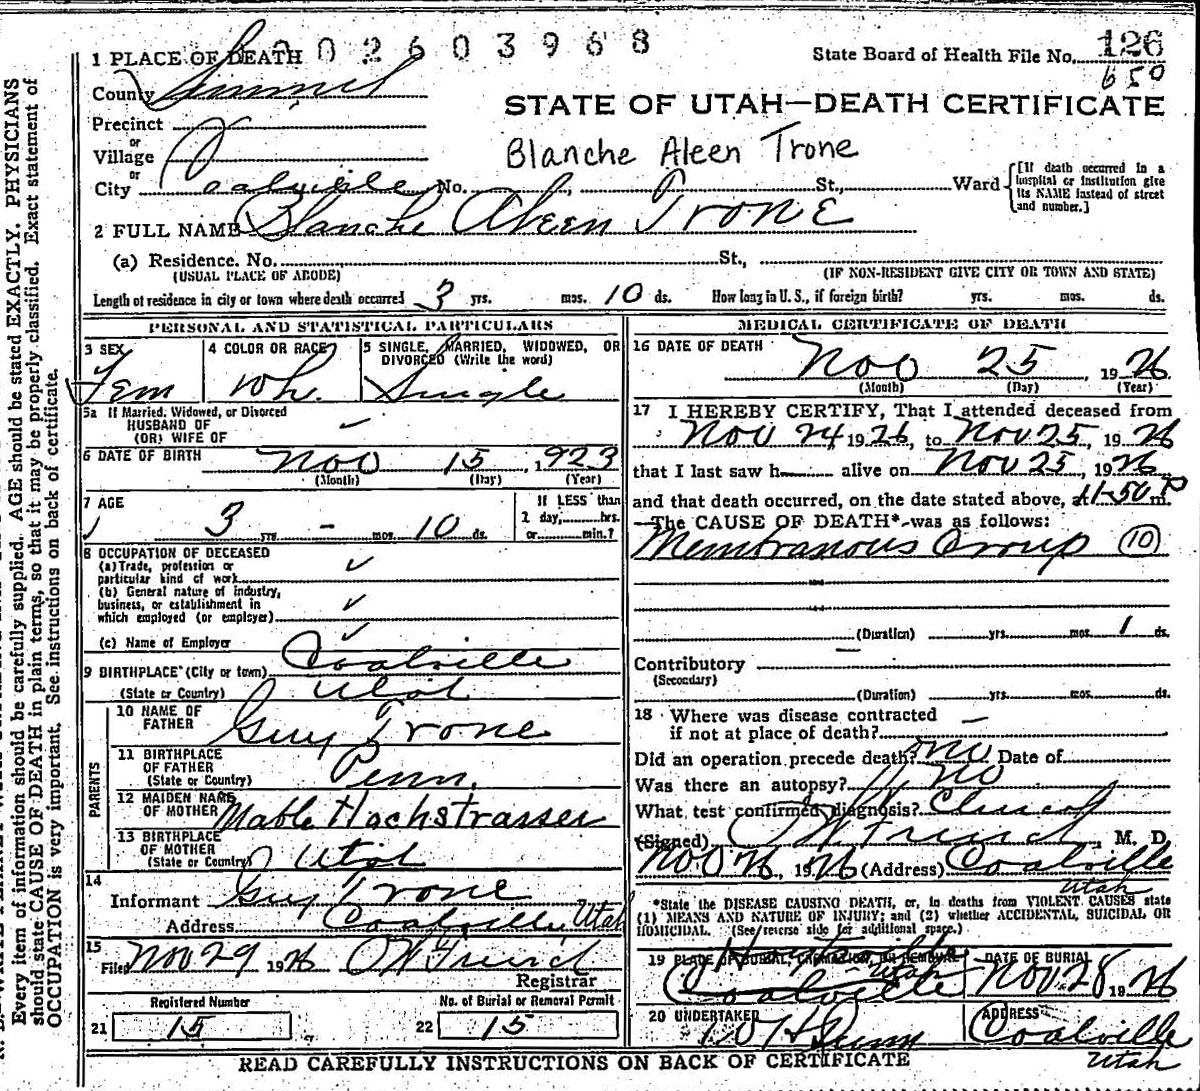 1 PLACE OF DEATH 002603968
State Board of Health File No. 126
650
County Summit
STATE OF UTAH—DEATH CERTIFICATE
Precinct
or
Village
Blanche Aleen Trone
or
City Coalville No. St., Ward
[If death occurred in a hospital or institution give its NAME instead of street and number.]
2 FULL NAME Blanche Aleen Trone
(a) Residence. No. St.,
(USUAL PLACE OF ABODE) (IF NON-RESIDENT GIVE CITY OR TOWN AND STATE)
Length of residence in city or town where death occurred 3 yrs. mos. 10 ds. How long in U. S., if foreign birth? yrs. mos. ds.
PERSONAL AND STATISTICAL PARTICULARS
3 SEX 4 COLOR OR RACE 5 SINGLE, MARRIED, WIDOWED, OR
DIVORCED (Write the word)
Fem Wh. Single
5a If Married, Widowed, or Divorced
HUSBAND OF
(OR) WIFE OF
6 DATE OF BIRTH Nov 15, 1923
(Month) (Day) (Year)
7 AGE If LESS than
1 day, hrs.
3 yrs. - mos. 10 ds. or min.?
8 OCCUPATION OF DECEASED
(a) Trade, profession or
particular kind of work
(b) General nature of industry,
business, or establishment in
which employed (or employer)
(c) Name of Employer
9 BIRTHPLACE (City or town) Coalville
(State or Country) Utah
PARENTS
10 NAME OF
FATHER Guy Trone
11 BIRTHPLACE
OF FATHER
(State or Country) Penn.
12 MAIDEN NAME
OF MOTHER Mable Hochstrasser
13 BIRTHPLACE
OF MOTHER
(State or Country) Utah
14
Informant Guy Trone
Address Coalville, Utah
15
Filed Nov 29 1926 O W French
Registrar
Registered Number No. of Burial or Removal Permit
21 15 22 15
MEDICAL CERTIFICATE OF DEATH
16 DATE OF DEATH
Nov 25, 1926
(Month) (Day) (Year)
17 I HEREBY CERTIFY, That I attended deceased from
Nov 24 1926, to Nov 25, 1926
that I last saw h alive on Nov 25, 1926
and that death occurred, on the date stated above, at 11-50 P m.
The CAUSE OF DEATH* was as follows:
Membranous Croup (10)
(Duration) yrs. mos. 1 ds.
Contributory
(Secondary)
(Duration) yrs. mos. ds.
18 Where was disease contracted
if not at place of death? -
Did an operation precede death? no Date of
Was there an autopsy? no
What test confirmed diagnosis? Clinical
(Signed) O W French, M. D.
Nov 26, 1926 (Address) Coalville
Utah
*State the DISEASE CAUSING DEATH, or, in deaths from VIOLENT CAUSES state
(1) MEANS AND NATURE OF INJURY; and (2) whether ACCIDENTAL, SUICIDAL OR
HOMICIDAL. (See reverse side for additional space.)
19 PLACE OF BURIAL, CREMATION, OR REMOVAL DATE OF BURIAL
Huntsville
Utah
Coalville Nov. 28 1926
20 UNDERTAKER ADDRESS
Dunn Coalville
Utah
READ CAREFULLY INSTRUCTIONS ON BACK OF CERTIFICATE
Every item of information should be carefully supplied. AGE should be stated EXACTLY. PHYSICIANS
should state CAUSE OF DEATH in plain terms, so that it may be properly classified. Exact statement of
OCCUPATION is very important. See instructions on back of certificate.